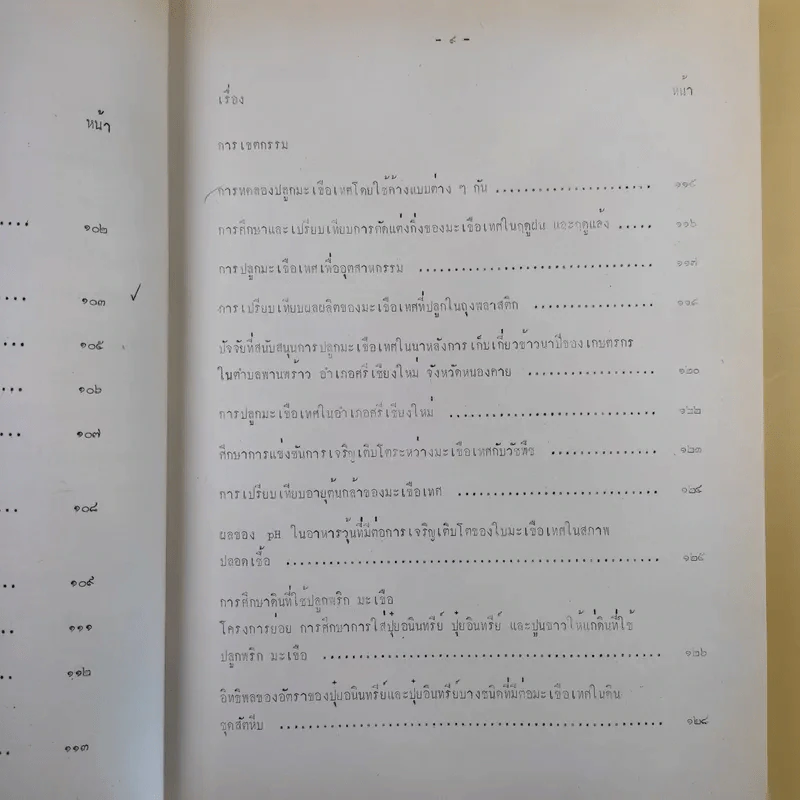 หน้า
๑๐๒
๑๐๓
๑๐๕
๑๐๖
๑๐๗
๑๐๘
๑๐๙
๑๑๑
๑๑๒
๑๑๓
- ๙ -
เรื่อง หน้า
การเขตกรรม
การทดลองปลูกมะเขือเทศโดยใช้ค้างแบบต่าง ๆ กัน ......................
การศึกษาและเปรียบเทียบการตัดแต่งกิ่งของมะเขือเทศในฤดูฝน และฤดูแล้ง ..... ๑๑๖
การปลูกมะเขือเทศเพื่ออุตสาหกรรม ................................. ๑๑๗
การเปรียบเทียบผลผลิตของมะเขือเทศที่ปลูกในถุงพลาสติก .................
ปัจจัยที่สนับสนุนการปลูกมะเขือเทศในนาหลังการเก็บเกี่ยวข้าวนาปีของเกษตรกร
ในตำบลพานพร้าว อำเภอศรีเชียงใหม่ จังหวัดหนองคาย .................. ๑๒๐
การปลูกมะเขือเทศในอำเภอศรีเชียงใหม่ ............................. ๑๒๒
ศึกษาการแข่งขันการเจริญเติบโตระหว่างมะเขือเทศกับวัชพืช ............... ๑๒๓
การเปรียบเทียบอายุต้นกล้าของมะเขือเทศ ............................ ๑๒๔
ผลของ pH ในอาหารวุ้นที่มีต่อการเจริญเติบโตของใบมะเขือเทศในสภาพ
ปลอดเชื้อ .................................................... ๑๒๕
การศึกษาดินที่ใช้ปลูกพริก มะเขือ
โครงการย่อย การศึกษาการใส่ปุ๋ยอนินทรีย์ ปุ๋ยอินทรีย์ และปูนขาวให้แก่ดินที่ใช้
ปลูกพริก มะเขือ .............................................. ๑๒๖
อิทธิพลของอัตราของปุ๋ยอนินทรีย์และปุ๋ยอินทรีย์บางชนิดที่มีต่อมะเขือเทศในดิน
ชุดสัตหีบ ..................................................... ๑๒๘